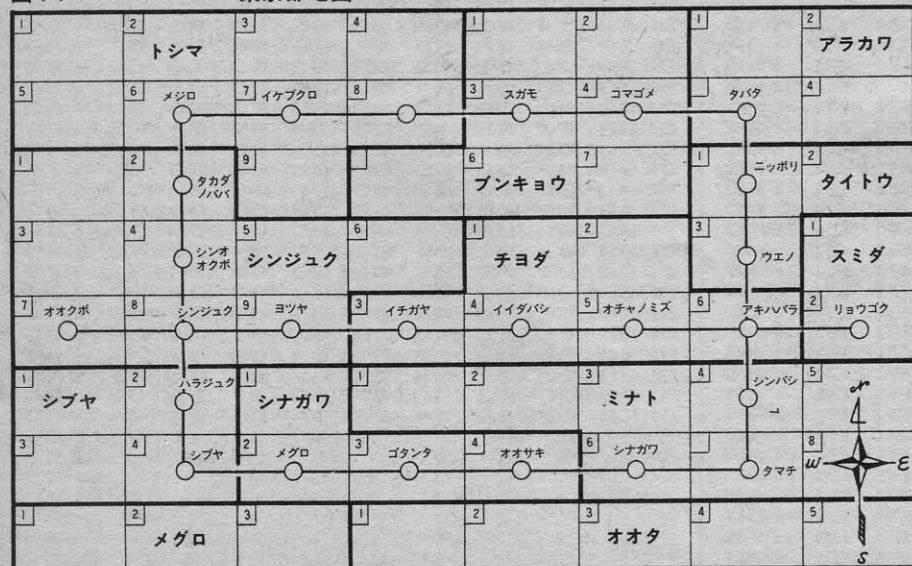 1 2 3 4 1 2 1 2
トシマ アラカワ
5 6 メジロ 7 イケブクロ 8 3 スガモ 4 コマゴメ タバタ 4
1 2 タカダノババ 9 6 ブンキョウ 7 1 ニッポリ 2 タイトウ
3 4 シンオオクボ 5 シンジュク 6 1 チヨダ 2 3 ウエノ 1 スミダ
7 オオクボ 8 シンジュク 9 ヨツヤ 3 イチガヤ 4 イイダバシ 5 オチャノミズ 6 アキハバラ 2 リョウゴク
1 シブヤ 2 ハラジュク 1 シナガワ 1 2 3 ミナト 4 シンバシ 5 N
3 4 シブヤ 2 メグロ 3 ゴタンタ 4 オオサキ 6 シナガワ タマチ 8 W E
1 2 メグロ 3 1 2 3 オオタ 4 5 S